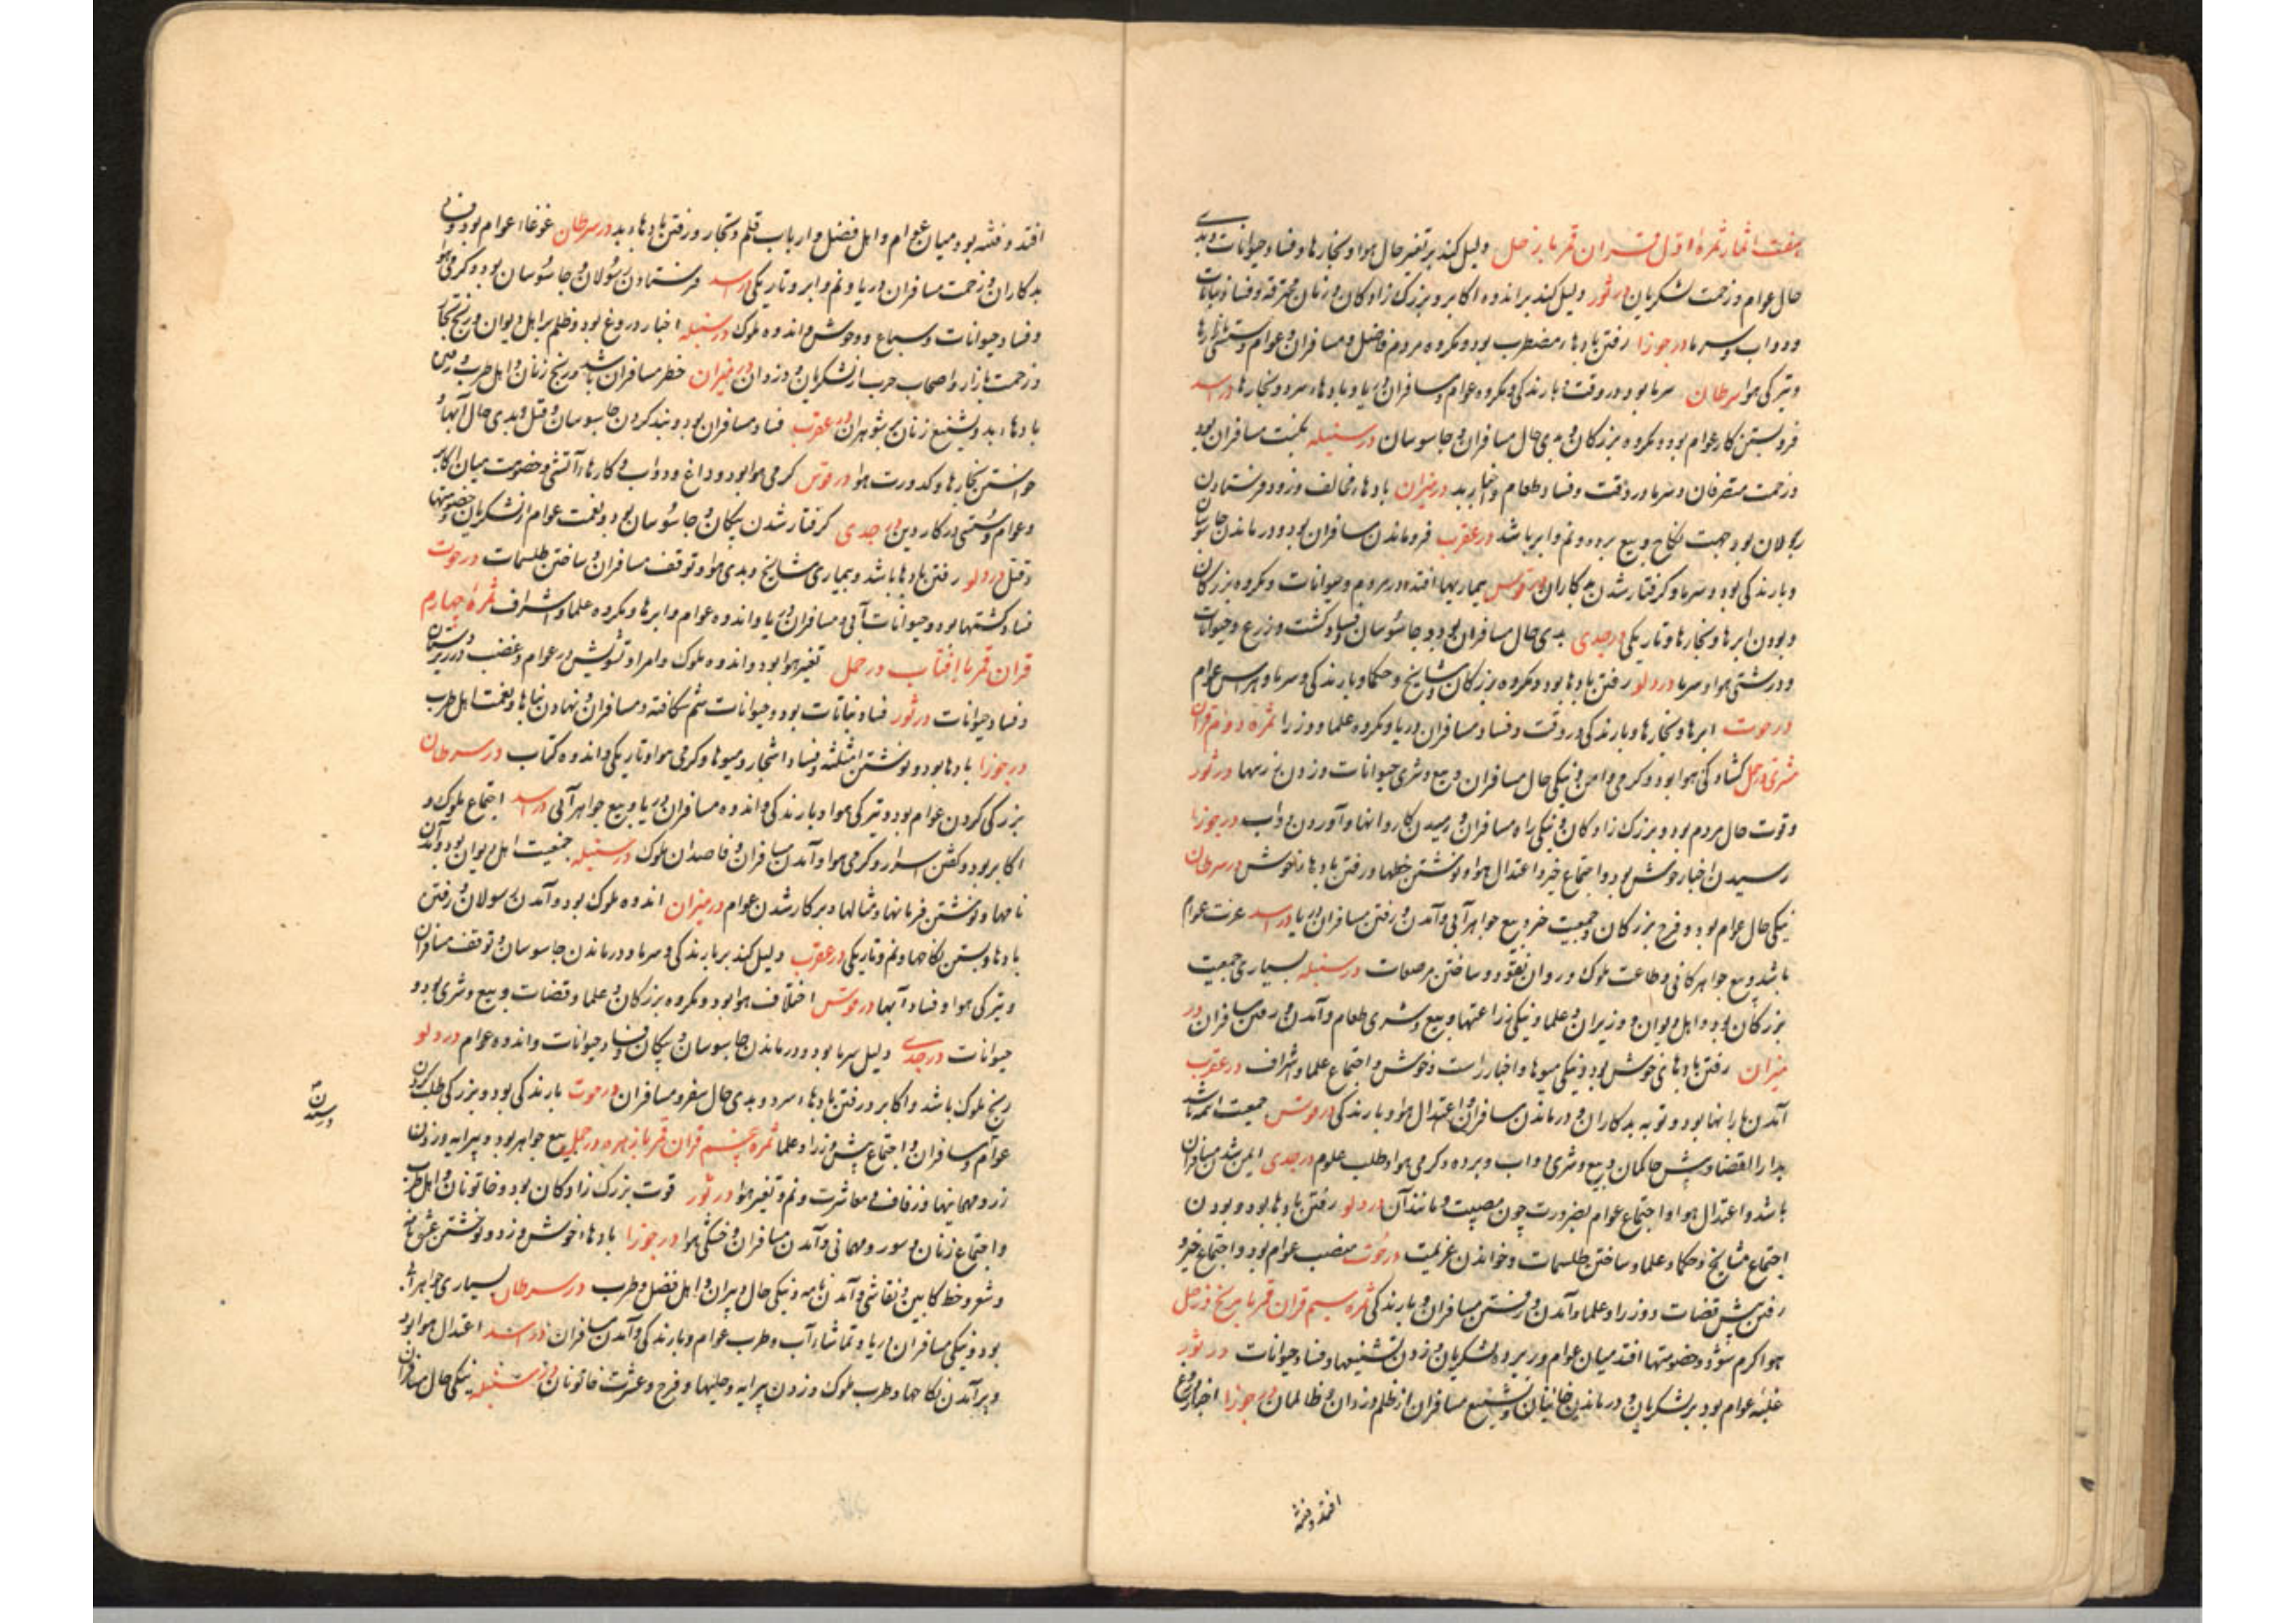 هفت اثمار ثمرهٔ اول قران قمر با زحل دلیل کند بر تغیر حال هوا و بخارها و فساد حیوانات و بدی
حال عوام و زحمت لشکریان در ثور دلیل کند بر اندوه اکابر و بزرک زادکان و زنان محترقه و فساد نباتات
و دواب و سرما در جوزا رفتن بادهاء مضطرب بود و مکروه مردم فاضل و مسافران و عوام و
و تیرکی هوا سرطان سرما بود در وقت و بارندکی و مکروه عوام و مسافران دریا و بادهاء سرد و بخارها در اسد
فروبستن کار عوام بود و مکروه بزرکان و بدی حال مسافران و جاسوسان در سنبله نکبت مسافران بود
و زحمت متصرفان و سرما در وقت و فساد طعام و اخبار بد در میزان بادهاء مخالف وزد و فرستادن
رسولان بود جهت نکاح و بیع برده و نم و ابر باشد در عقرب فروماندن مسافران بود و درماندن جاسوسان
و بارندکی بود و سرما و کرفتار شدن بدکاران در قوس بیماریها افتد در مردم و حیوانات و مکروه بزرکان
و بودن ابرها و بخارها و تاریکی در جدی بدی حال مسافران بود و جاسوسان و فساد کشت و زرع و حیوانات
و درشتی هوا و سرما در دلو رفتن بادها بود و مکروه بزرکان و مشایخ و حکما و بارندکی و سرما و هراس عوام
در حوت ابرها و بخارها و بارندکی در وقت و فساد مسافران دریا و مکروه علما و وزرا ثمرهٔ دوم قران
مشتری در حمل کشادکی هوا بود و کرمی و امن و نیکی حال مسافران و بیع و شری حیوانات و زدن در ثور
و قوت حال مردم بود و بزرک زادکان و نیکی راه مسافران و رسیدن کاروانها و آوردن دواب در جوزا
رسیدن اخبار خوش بود و اجتماع خیر و اعتدال هوا و نوشتن خطها و رفتن بادها ناخوش در سرطان
نیکی حال عوام بود و فرح بزرکان و جمعیت خیر و بیع جواهر آبی و آمدن و رفتن مسافران دریا در اسد عزت عوام
باشد و بیع جواهر کانی و طاعت ملوک و روان نقود و ساختن مرصعات در سنبله بسیاری جمعیت
بزرکان بود و اهل دیوان و وزیران و علما و نیکی زراعتها و بیع و شری طعام و آمدن و رفتن مسافران در
میزان رفتن بادهای خوش بود و نیکی میوها و اخبار راست و خوش و اجتماع علما و اشراف در عقرب
آمدن بارانها بود و توبه بدکاران و درماندن مسافران و اعتدال هوا و بارندکی در قوس جمعیت ائمه باشد
بدار القضا و پیش حاکمان و بیع و شری دواب و برده و کرمی هوا و طلب علوم در جدی ایمن شدن مسافران
باشد و اعتدال هوا و اجتماع عوام بضرورت چون مصیبت و مانند آن در دلو رفتن بادها بود و بودن
اجتماع مشایخ و حکما و علما و ساختن طلسمات و خواندن عزیمت در حوت منصب عوام بود و اجتماع خیر و
رفتن پیش قضات و وزرا و علما و آمدن و رفتن مسافران و بارندکی ثمره سیم قران قمر با مریخ در حمل
هوا کرم شود و خصومتها افتد میان عوام و زیردستان و لشکریان و زدن تشنیعها و فساد حیوانات در ثور
غلبه عوام بود بر لشکریان و درماندن خاینان و تشنیع مسافران از ظلم دزدان و ظالمان در جوزا اخبار دروغ
افتد و فتنه
افتد و فتنه بود میان عوام و اهل فضل و ارباب قلم و تجار و رفتن بادهاء بد در سرطان غوغاء عوام بود و
بدکاران و زحمت مسافران دریا و نم و ابر و تاریکی در اسد فرستادن رسولان و جاسوسان بود و کرمی هوا
و فساد حیوانات و سباع و وحوش و اندوه ملوک در سنبله اخبار دروغ بود و ظلم بر اهل دیوان و رنج تجار
و زحمت بازار و اصحاب حرب از لشکریان و دزدان در میزان خطر مسافران باشد و رنج زنان و اهل طرب و رفتن
بادهاء بد و تشنیع زنان بر شوهران در عقرب فساد مسافران بود و بند کردن جاسوسان و قتل و بدی حال آبها و
خواستن بخارها و کدورت هوا در قوس کرمی هوا بود و داغ دواب و کارهاء آتشی و خصومت میان اکابر
و عوام و سستی در کار دین در جدی کرفتار شدن پیکان و جاسوسان بود و نعمت عوام از لشکریان و خصومتها
و قتل در دلو رفتن بادها باشد و بیماری مشایخ و بدی هوا و توقف مسافران و ساختن طلسمات در حوت
فساد کشتیها بود و حیوانات آبی و مسافران دریا و اندوه عوام و ابرها و مکروه علما و اشراف ثمرهٔ چهارم
قران قمر با افتاب در حمل تغیر هوا بود و اندوه ملوک و امرا و تشویش در عوام و غضب در زیردستان
و فساد حیوانات در ثور فساد نباتات بود و حیوانات سم شکافته و مسافران و نهادن بناها و نعمت اهل طرب
در جوزا بادها بود و نوشتن امثله و فساد اشجار و میوها و کرمی هوا و تاریکی و اندوه کتاب در سرطان
بزرکی کردن عوام بود و تیرکی هوا و بارندکی و اندوه مسافران دریا و بیع جواهر آبی در اسد اجتماع ملوک و
اکابر بود و کفتن اسرار و کرمی هوا و آمدن مسافران و قاصدان ملوک در سنبله جمعیت اهل دیوان بود و آمدن
نامها و نوشتن فرمانها و مثالها و برکار شدن عوام در میزان اندوه ملوک بود و آمدن رسولان و رفتن
بادها و بستن نکاحها و نم و تاریکی در عقرب دلیل کند بر بارندکی و سرما و درماندن جاسوسان و توقف مسافران
و تیرکی هوا و فساد آبها در قوس اختلاف هوا بود و مکروه بزرکان و علما و قضات و بیع و شری بود و
حیوانات در جدی دلیل سرما بود و درماندن جاسوسان و پیکان و فساد حیوانات و اندوه عوام در دلو
رنج ملوک باشد و اکابر و رفتن بادهاء سرد و بدی حال سفر و مسافران در حوت بارندکی بود و بزرکی طلب کردن
عوام و مسافران و اجتماع پیش وزرا و علما ثمره پنجم قران قمر با زهره در حمل بیع جواهر بود و پیرایه و زدن
زر و مهمانیها و زفاف و معاشرت و نم و تغیر هوا در ثور قوت بزرک زادکان بود و خاتونان و اهل طرب
و اجتماع زنان و سور و مهمانی و آمدن مسافران و خنکی هوا در جوزا بادهاء خوش وزد و نوشتن عشق نامه
و شعر و خط کابین و نقاشی و آمدن نامه و نیکی حال دبیران و اهل فضل و طرب در سرطان بسیاری جواهر آبی
بود و نیکی مسافران دریا و تماشاء آب و طرب عوام و بارندکی و آمدن مسافران در اسد اعتدال هوا بود
و برآمدن نکاحها و طرب ملوک و زدن پیرایه و حلیها و فرح و عشرت خاتونان در سنبله نیکی حال مسافران